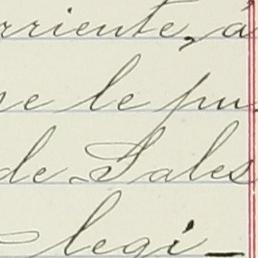 rriente, á
se le pu
de Sales
legi_